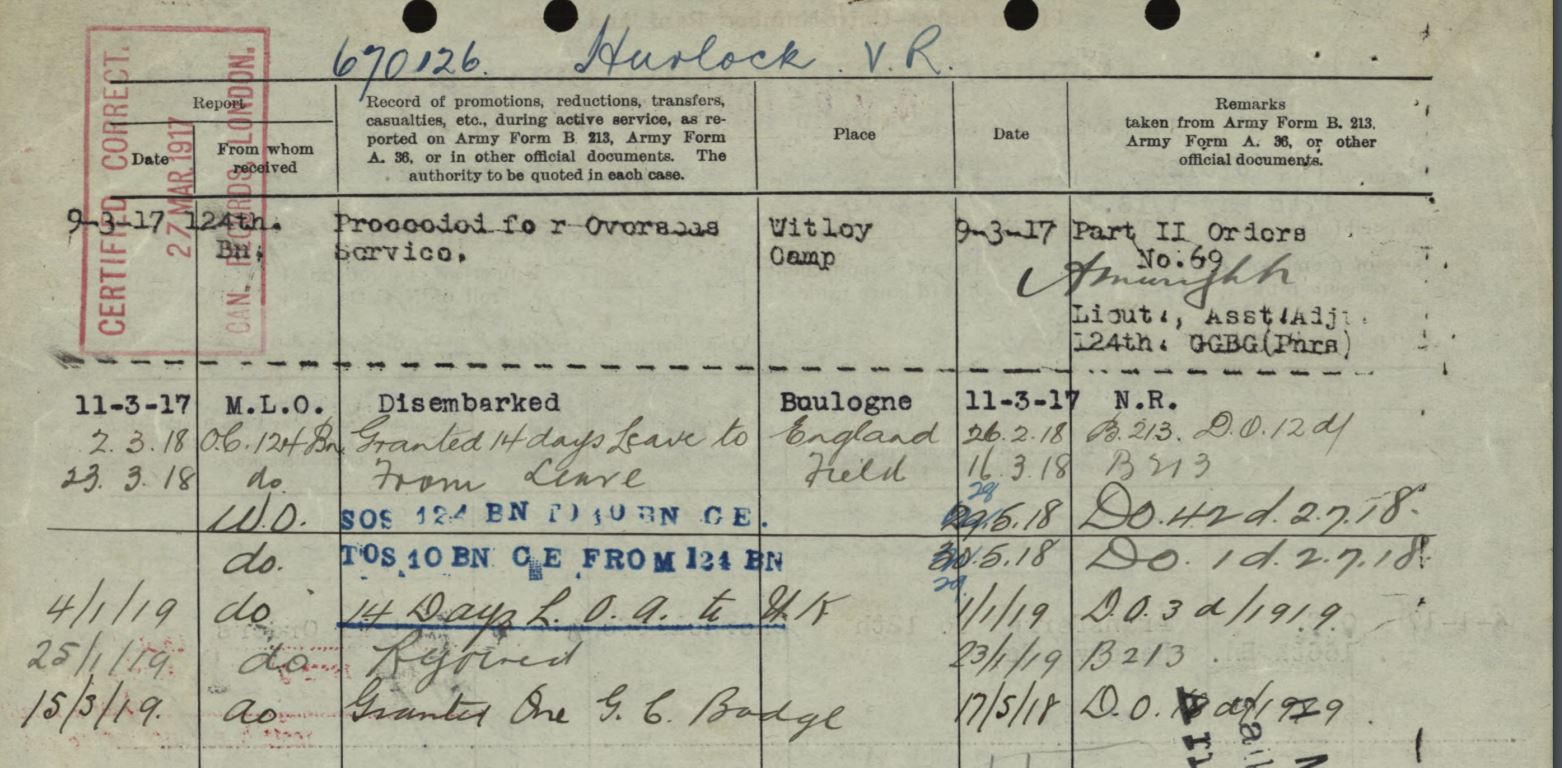 670126. Hurlock. V. R.
CERTIFIED CORRECT.
27 MAR. 1917
CAN. RECORDS, LONDON.
Report
Date
From whom received
Record of promotions, reductions, transfers,
casualties, etc., during active service, as re-
ported on Army Form B 213, Army Form
A. 36, or in other official documents. The
authority to be quoted in each case.
Place
Date
Remarks
taken from Army Form B. 213,
Army Form A. 36, or other
official documents.
9-3-17 124th. Proceeded fo r Overseas Witley 9-3-17 Part II Orders
Bn. Service. Camp No.69
Lieut., Asst.Adj.
124th. GGBG(Pnrs)
11-3-17 M.L.O. Disembarked Boulogne 11-3-17 N.R.
2.3.18 O.C. 124 Bn. Granted 14 days Leave to England 26.2.18 B.213. D.O.12 d/
23.3.18 do From Leave Field 16.3.18 B213
28
W.O. SOS 124 BN TO 10 BN C E. 29.5.18 D.O.42 d. 2.7.18.
do. TOS 10 BN C E FROM 124 BN 30.5.18 D.O. 1 d. 2.7.18.
29
4/1/19 do 14 Days L. O. A. to U.K 1/1/19 D.O.3 d/1919
25/1/19 do Rejoined 23/1/19 B213.
15/3/19. do Granted One G. C. Badge 17/5/18 D.O. d/1919